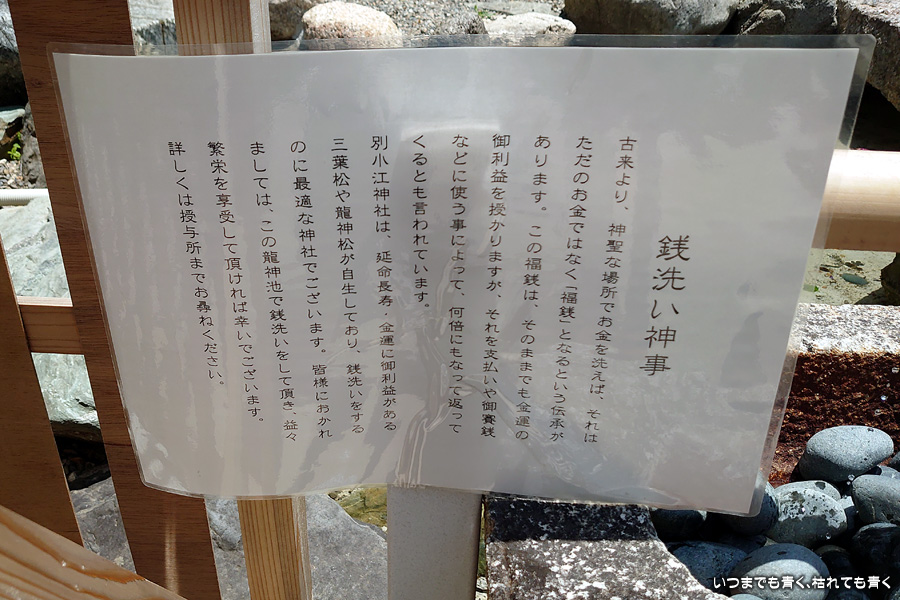 銭洗い神事
古来より、神聖な場所でお金を洗えば、それは
ただのお金ではなく「福銭」となるという伝承が
あります。この福銭は、そのままでも金運の
御利益を授かりますが、それを支払いや御賽銭
などに使う事によって、何倍にもなって返って
くるとも言われています。
別小江神社は、延命長寿・金運に御利益がある
三葉松や龍神松が自生しており、銭洗いをする
のに最適な神社でございます。皆様におかれ
ましては、この龍神池で銭洗いをして頂き、益々
繁栄を享受して頂ければ幸いでございます。
詳しくは授与所までお尋ねください。
いつまでも青く、枯れても青く